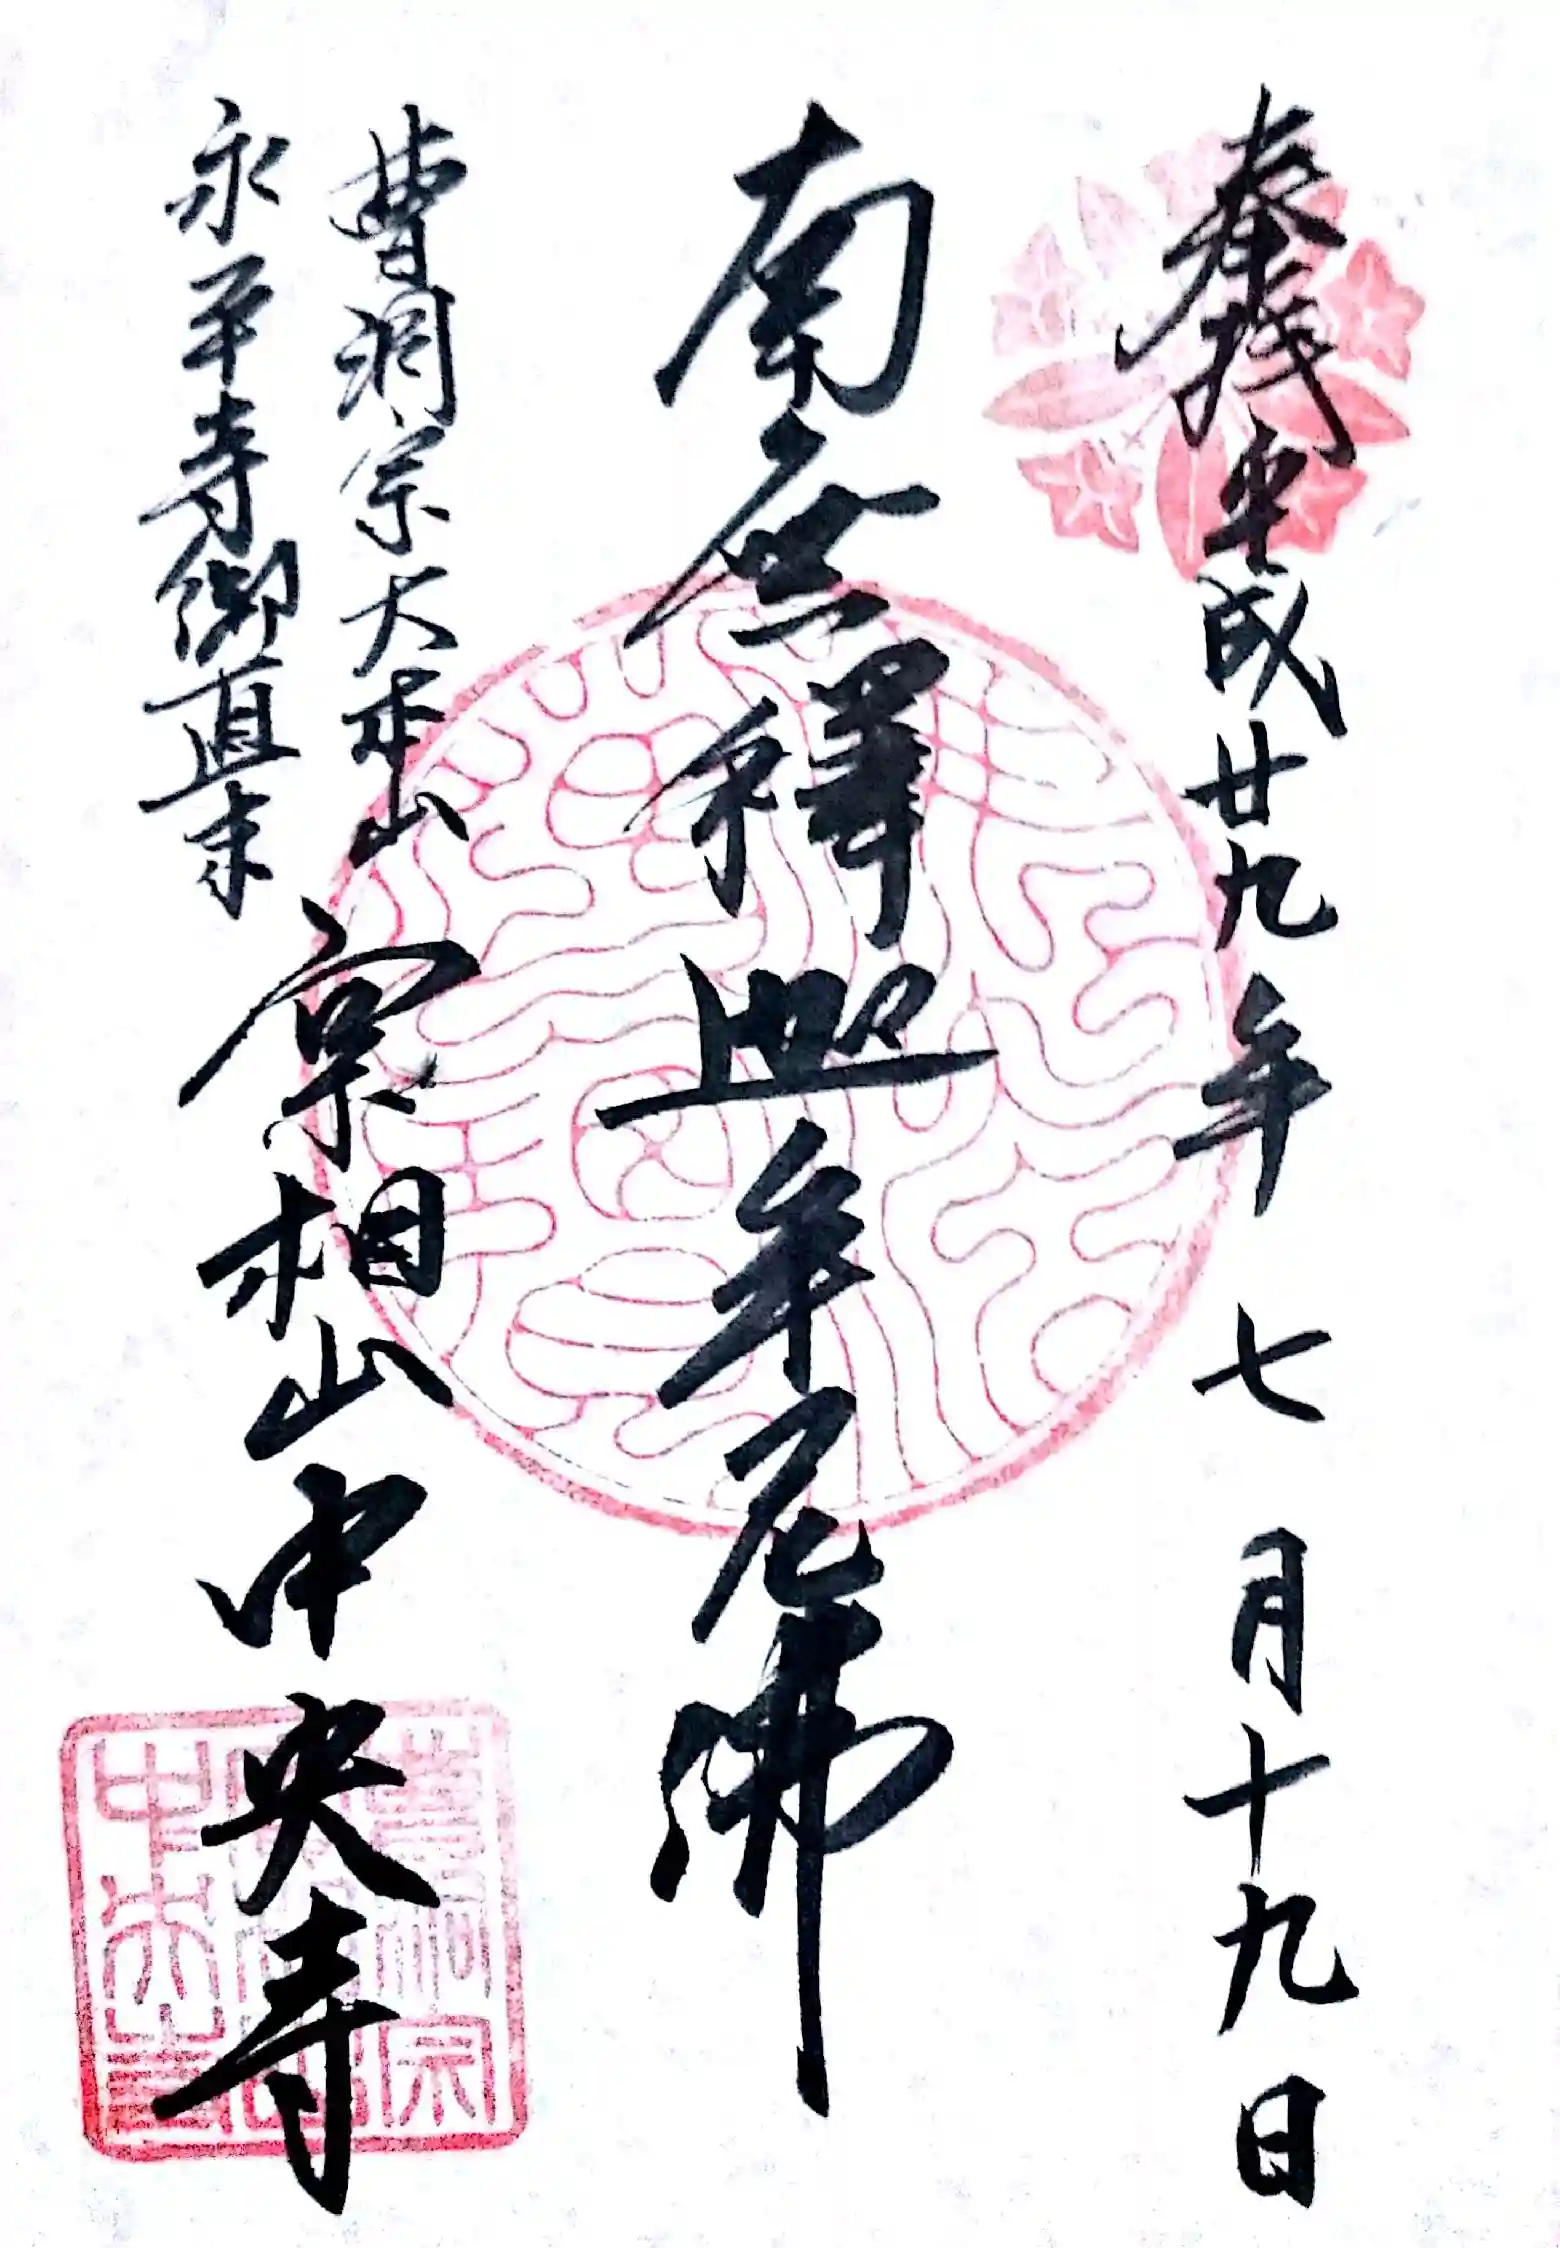 奉拝
平成廿九年七月十九日
南無釋迦牟尼佛
曹洞宗大本山
永平寺御直末
宗相山中央寺
曹洞宗
中央寺